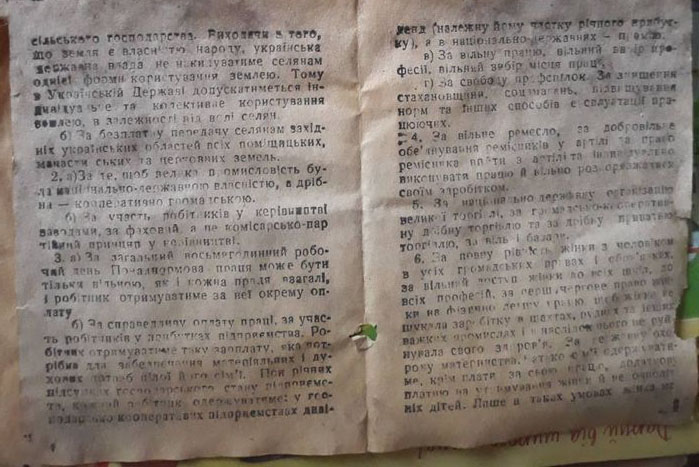 сільського господарства. Виходячи з того,
що земля є власністю народу, українська
державна влада не накидуватиме селянам
одної форми користування землею. Тому
в Українській Державі допускатиметься ін-
дивідуальне та колективне користування
землею, в залежності від волі селян.
б) За безплатну передачу селянам захід-
ніх українських областей всіх поміщицьких,
манастирських та церковних земель.
2. а) За те, щоб велика промисловість бу-
ла національно-державною власністю, а дріб-
на — кооперативно громадською.
б) За участь робітників у керівництві
заводами, за фаховий, а не комісарсько-пар-
тійний принцип у керівництві.
3. а) За загальний восьмигодинний робо-
чий день. Понаднормова праця може бути
тільки вільною, як і кожна праця взагалі,
і робітник отримуватиме за неї окрему оп-
лату
б) За справедливу оплату праці, за учас-
ть робітників у прибутках підприємства. Ро-
бітник отримуватиме таку зарплату, яка пот-
рібна для забезпечення матеріяльних і ду-
хових потреб цілої його сім'ї. При річних
підсумках господарського стану підприємс-
тв, кожний робітник одержуватиме: у гос-
подарсько кооперативних підприємствах диві-
денд (належну йому частку річного прибут-
ку), а в національно-державних — премію.
в) За вільну працю, вільний вибір про-
фесії, вільний вибір місця праці.
г) За свободу профспілок. За знищення
стахановщини, соцзмагань, підвищування
норм та інших способів експлуатації пра-
цюючих.
4. За вільне ремесло, за добровільне
об'єднування ремісників у артілі, за право
ремісника вийти з артілі та індивідуально
виконувати працю й вільно розпоряджатися
своїм заробітком.
5. За національно-державну організацію
великої торгівлі, за громадсько-кооператив-
ну дрібну торгівлю та за дрібну приватню
торгівлю, за вільні базари.
6. За повну рівність жінки з чоловіком
в усіх громадських правах і обов'язках,
за вільний доступ жінки до всіх шкіл, до
всіх професій, за першочергове право жін-
ки на фізично легшу працю, щоб жінка не
шукала заробітку в шахтах, рудниках та інших
важких промислах і внаслідок цього не руй-
нувала свого здоров'я. За державну охо-
рону материнства. Батько сім'ї одержувати-
ме, крім плати за свою працю, додаткову
платню на утримування жінки й неповноліт-
ніх дітей. Лише в таких умовах жінка ма-